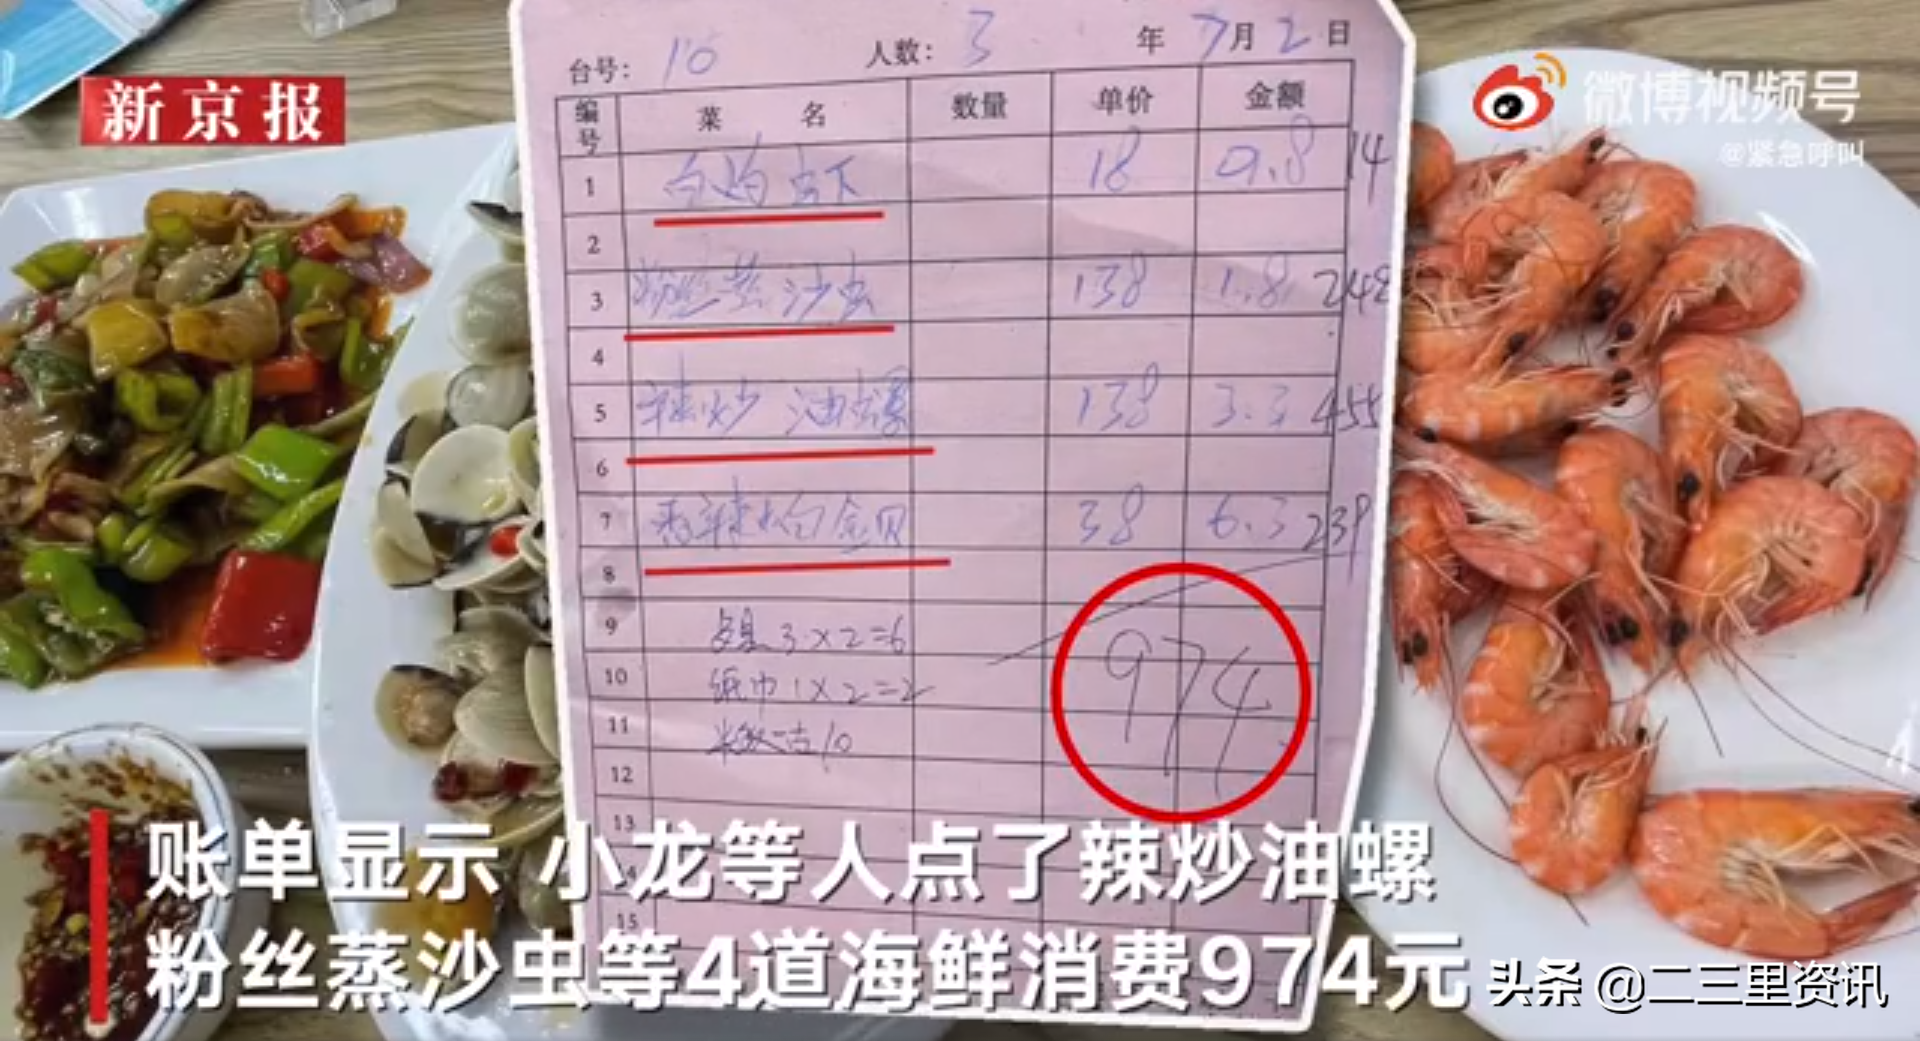 新京报
微博视频号
@紧急呼叫
台号： 10 人数： 3 年 7 月 2 日
编号 菜名 数量 单价 金额
1 白灼虾 18 9.8 14
2
3 粉丝蒸沙虫 138 1.8 248
4
5 辣炒油螺 138 3.3 455
6
7 香辣炒白金贝 38 6.3 239
8
9 3×2=6
10 纸巾 1×2=2
974
11 10
12
13
14
15
账单显示 小龙等人点了辣炒油螺
粉丝蒸沙虫等4道海鲜消费974元
头条 @二三里资讯